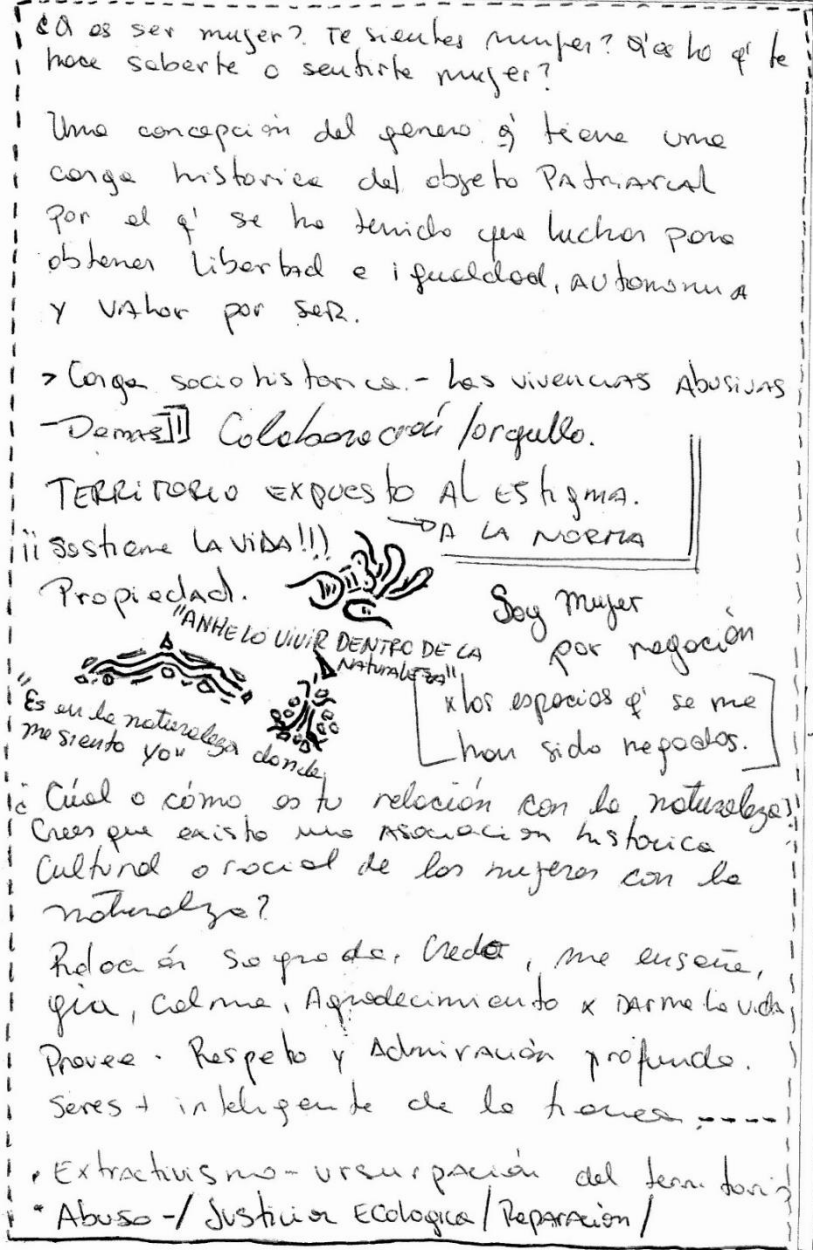 ¿Q es ser mujer? Te sientes mujer? Q'es lo q' te
hace saberte o sentirte mujer?
Una concepción del genero q' tiene una
carga historica del objeto PATRIARCAL
por el q' se ha tenido que luchar para
obtener libertad e igualdad, AUTONOMIA
Y VALOR por SER.
> Carga sociohistorica. - Las vivencias Abusivas
- Demas Colaboración / orgullo.
TERRITORIO EXPUESTO AL ESTIGMA.
A LA NORMA
¡¡Sostiene LA VIDA!!)
Propiedad.
Soy Mujer
por negación
[x los espacios q' se me
han sido negados.]
"ANHELO VIVIR DENTRO DE LA
NATURALEZA"
"Es en la naturaleza donde
me siento yo"
¿Cúal o cómo es tu relación con la naturaleza?
Crees que existe una Asociación historica
Cultural o social de las mujeres con la
naturaleza?
Relación Sagrada, me enseña,
guia, Calma, Agradecimiento x DARme la vida,
Provee. Respeto y Admiración profunda.
Seres + inteligente de la
• Extractivismo - ursurpación del territorio
* Abuso -/ Justicia Ecologica / Reparacion /